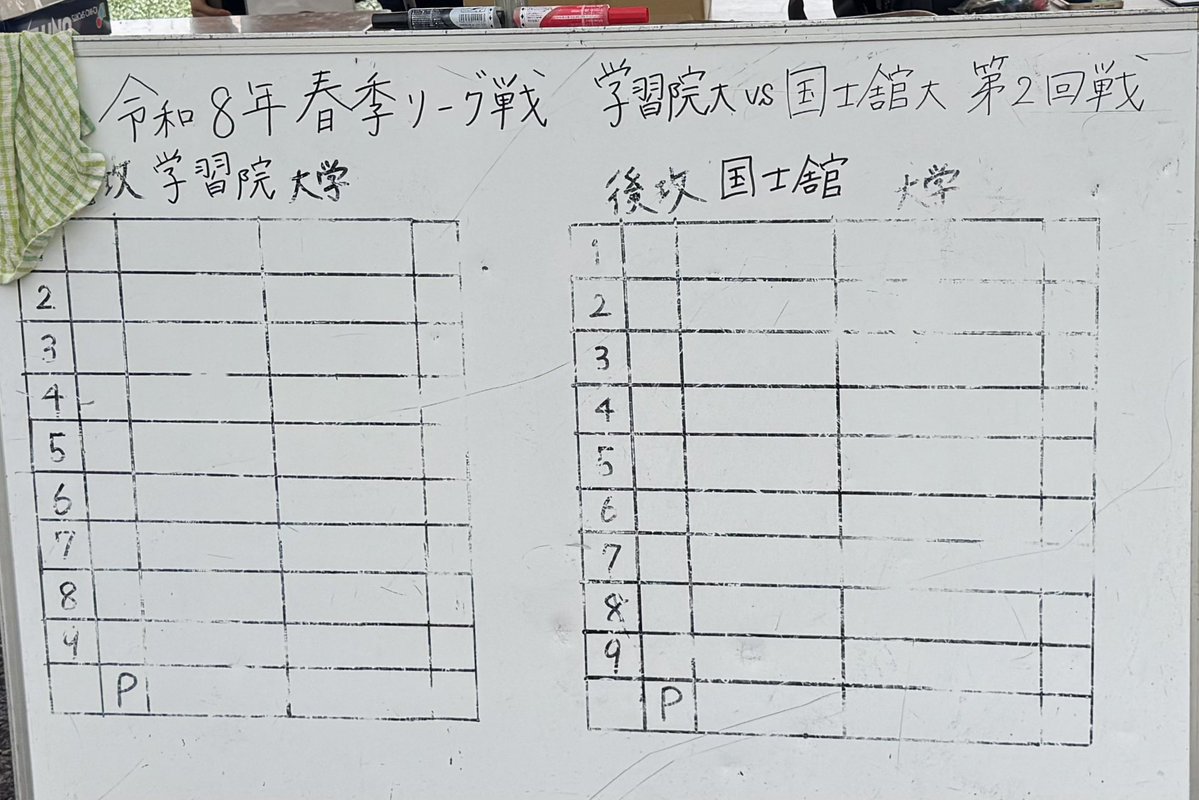 令和8年 春季リーグ戦 学習院大 vs 国士舘大 第2回戦
攻 学習院 大学
後攻 国士舘 大学
2
3
4
5
6
7
8
9
P
1
2
3
4
5
6
7
8
9
P